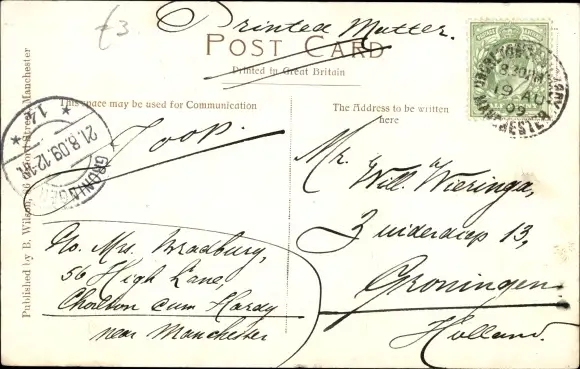 £3
Printed Matter.
POST CARD
Printed in Great Britain
This space may be used for Communication
The Address to be written
here
Joop.
Mr. Will. Wieringa,
Zuiderdiep 13,
Groningen
Holland.
c/o. Mrs. Bradbury,
56 High Lane,
Chorlton cum Hardy
near Manchester
Published by B. Wilson, Manchester
21.8.09. 12-1
GRONINGEN
19 AU
09